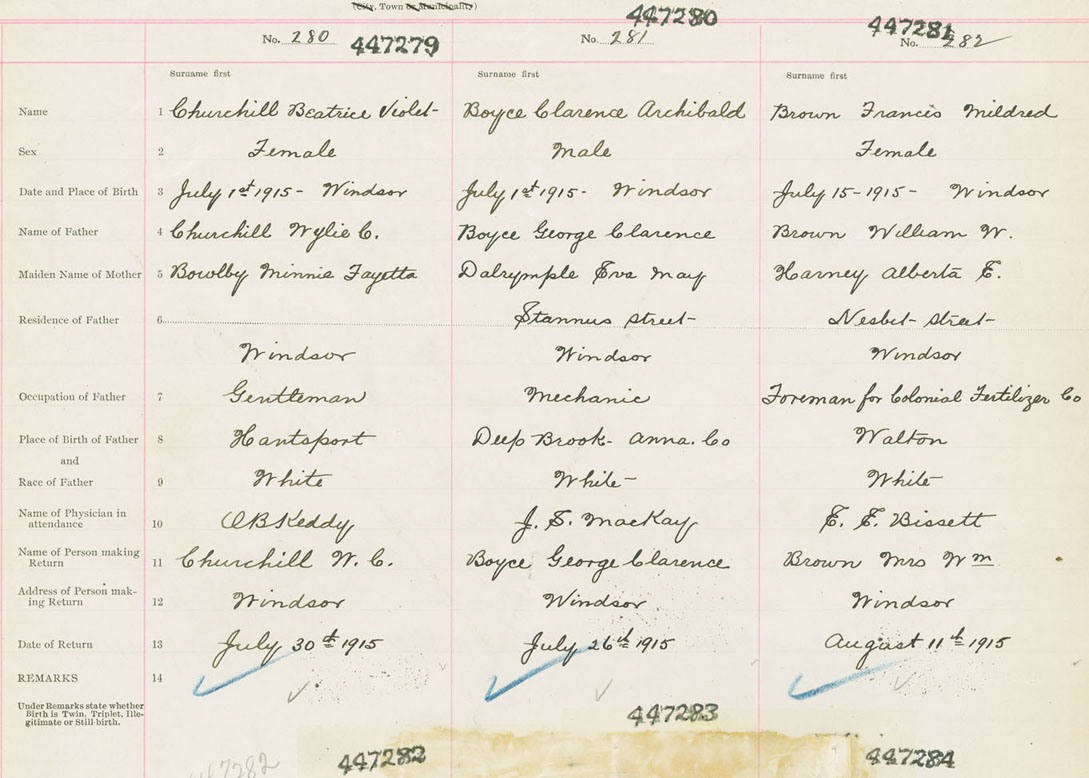 (City, Town or Municipality)
No. 280 447279
447280
No. 281
447281
No. 282
Surname first Surname first Surname first
Name 1 Churchill Beatrice Violet Boyce Clarence Archibald Brown Francis Mildred
Sex 2 Female Male Female
Date and Place of Birth 3 July 1st 1915 - Windsor July 1st 1915 - Windsor July 15 - 1915 - Windsor
Name of Father 4 Churchill Wylie C. Boyce George Clarence Brown William W.
Maiden Name of Mother 5 Bowlby Minnie Fayetta Dalrymple Eva May Harney Alberta E.
Residence of Father 6 Stannus Street Nesbit Street
Windsor Windsor Windsor
Occupation of Father 7 Gentleman Mechanic Foreman for Colonial Fertilizer Co
Place of Birth of Father 8 Hantsport Deep Brook - Anna. Co Walton
and
Race of Father 9 White White White
Name of Physician in
attendance 10 O B Keddy J. S. MacKay E. E. Bissett
Name of Person making
Return 11 Churchill W. C. Boyce George Clarence Brown Mrs Wm
Address of Person mak-
ing Return 12 Windsor Windsor Windsor
Date of Return 13 July 30th 1915 July 26th 1915 August 11th 1915
REMARKS 14
Under Remarks state whether
Birth is Twin, Triplet, Ille-
gitimate or Still-birth.
447283
447282 447282 447284